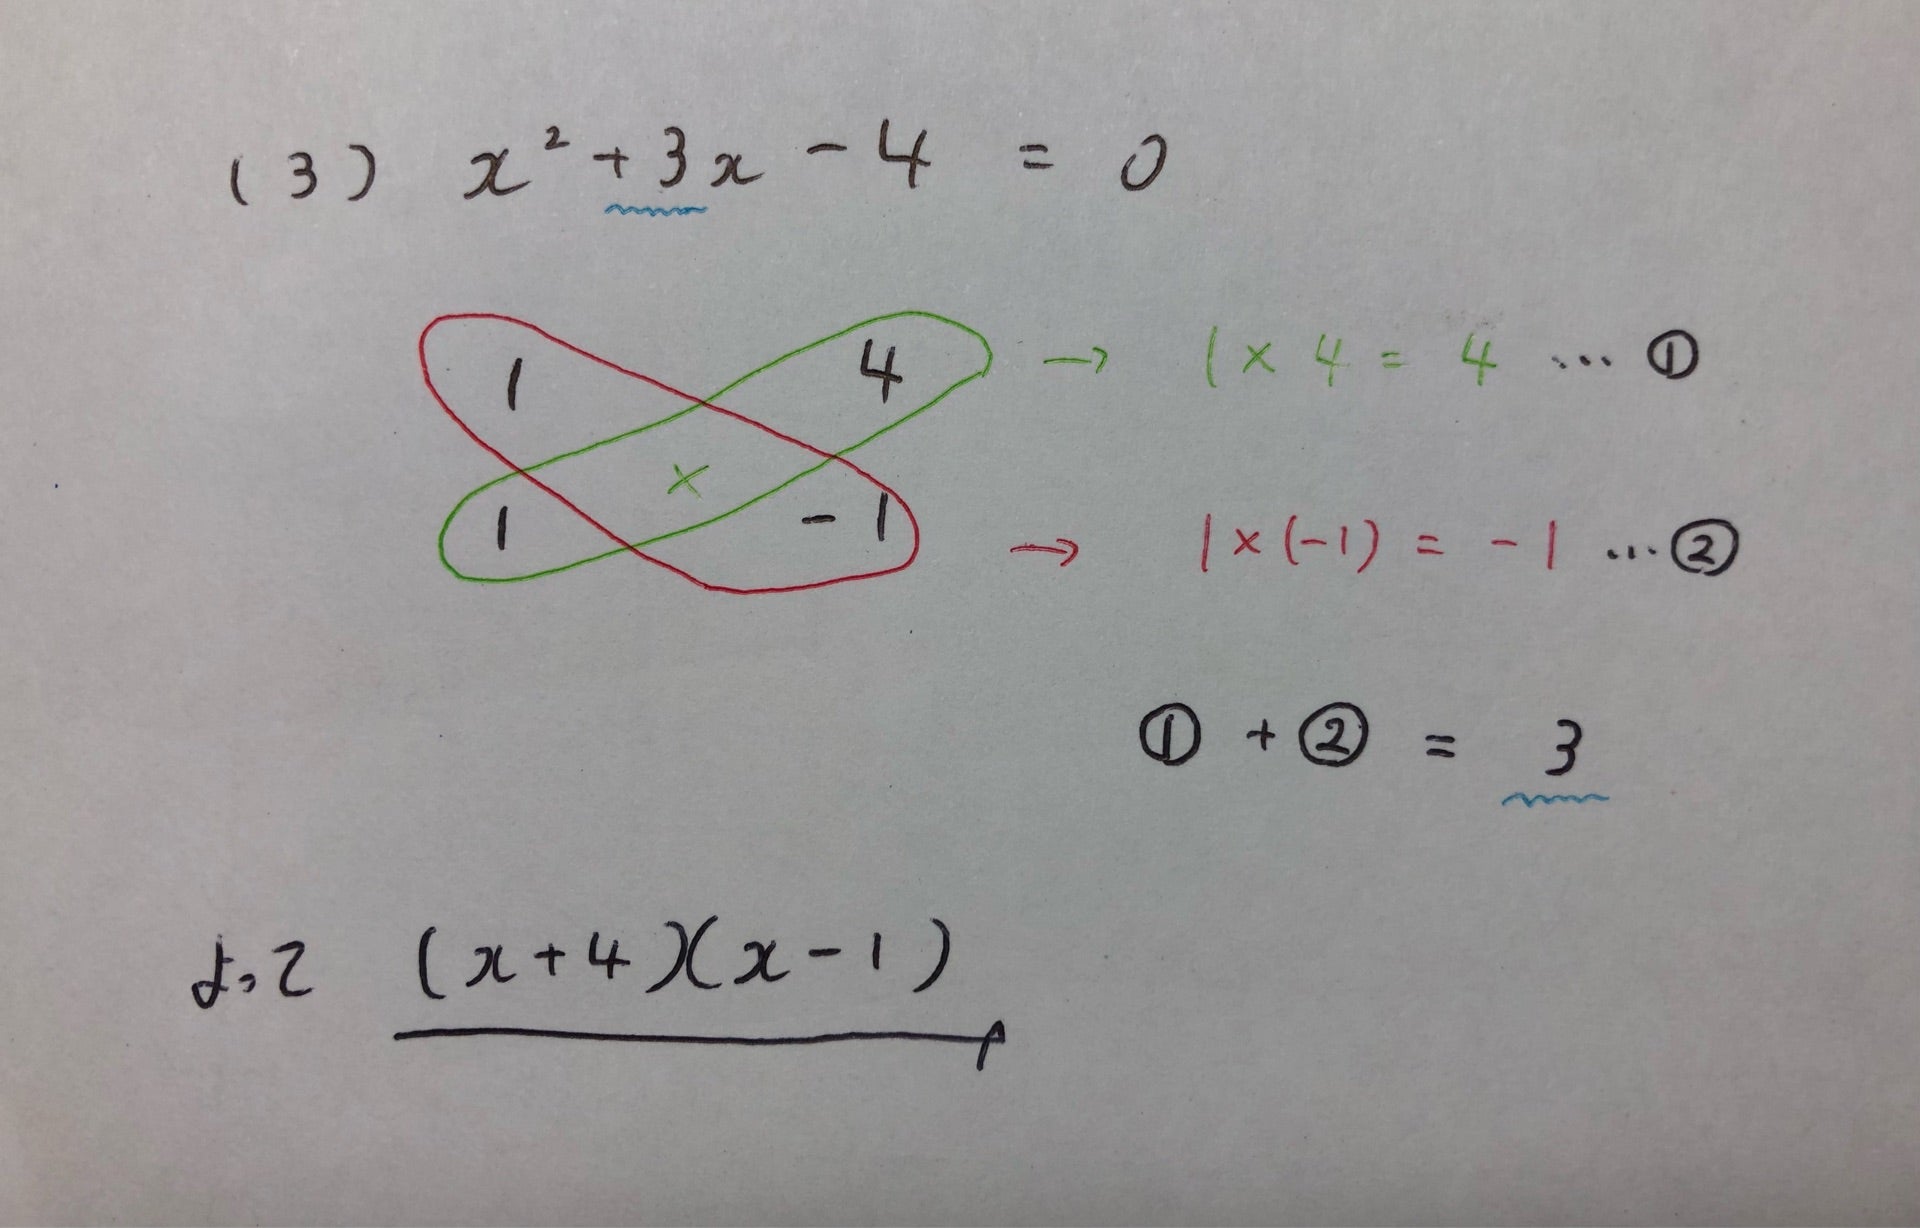 (3) x² +3x -4 = 0
1 4 → 1 × 4 = 4 … ①
×
1 -1 → 1 × (-1) = -1 … ②
① + ② = 3
よって (x+4)(x-1)